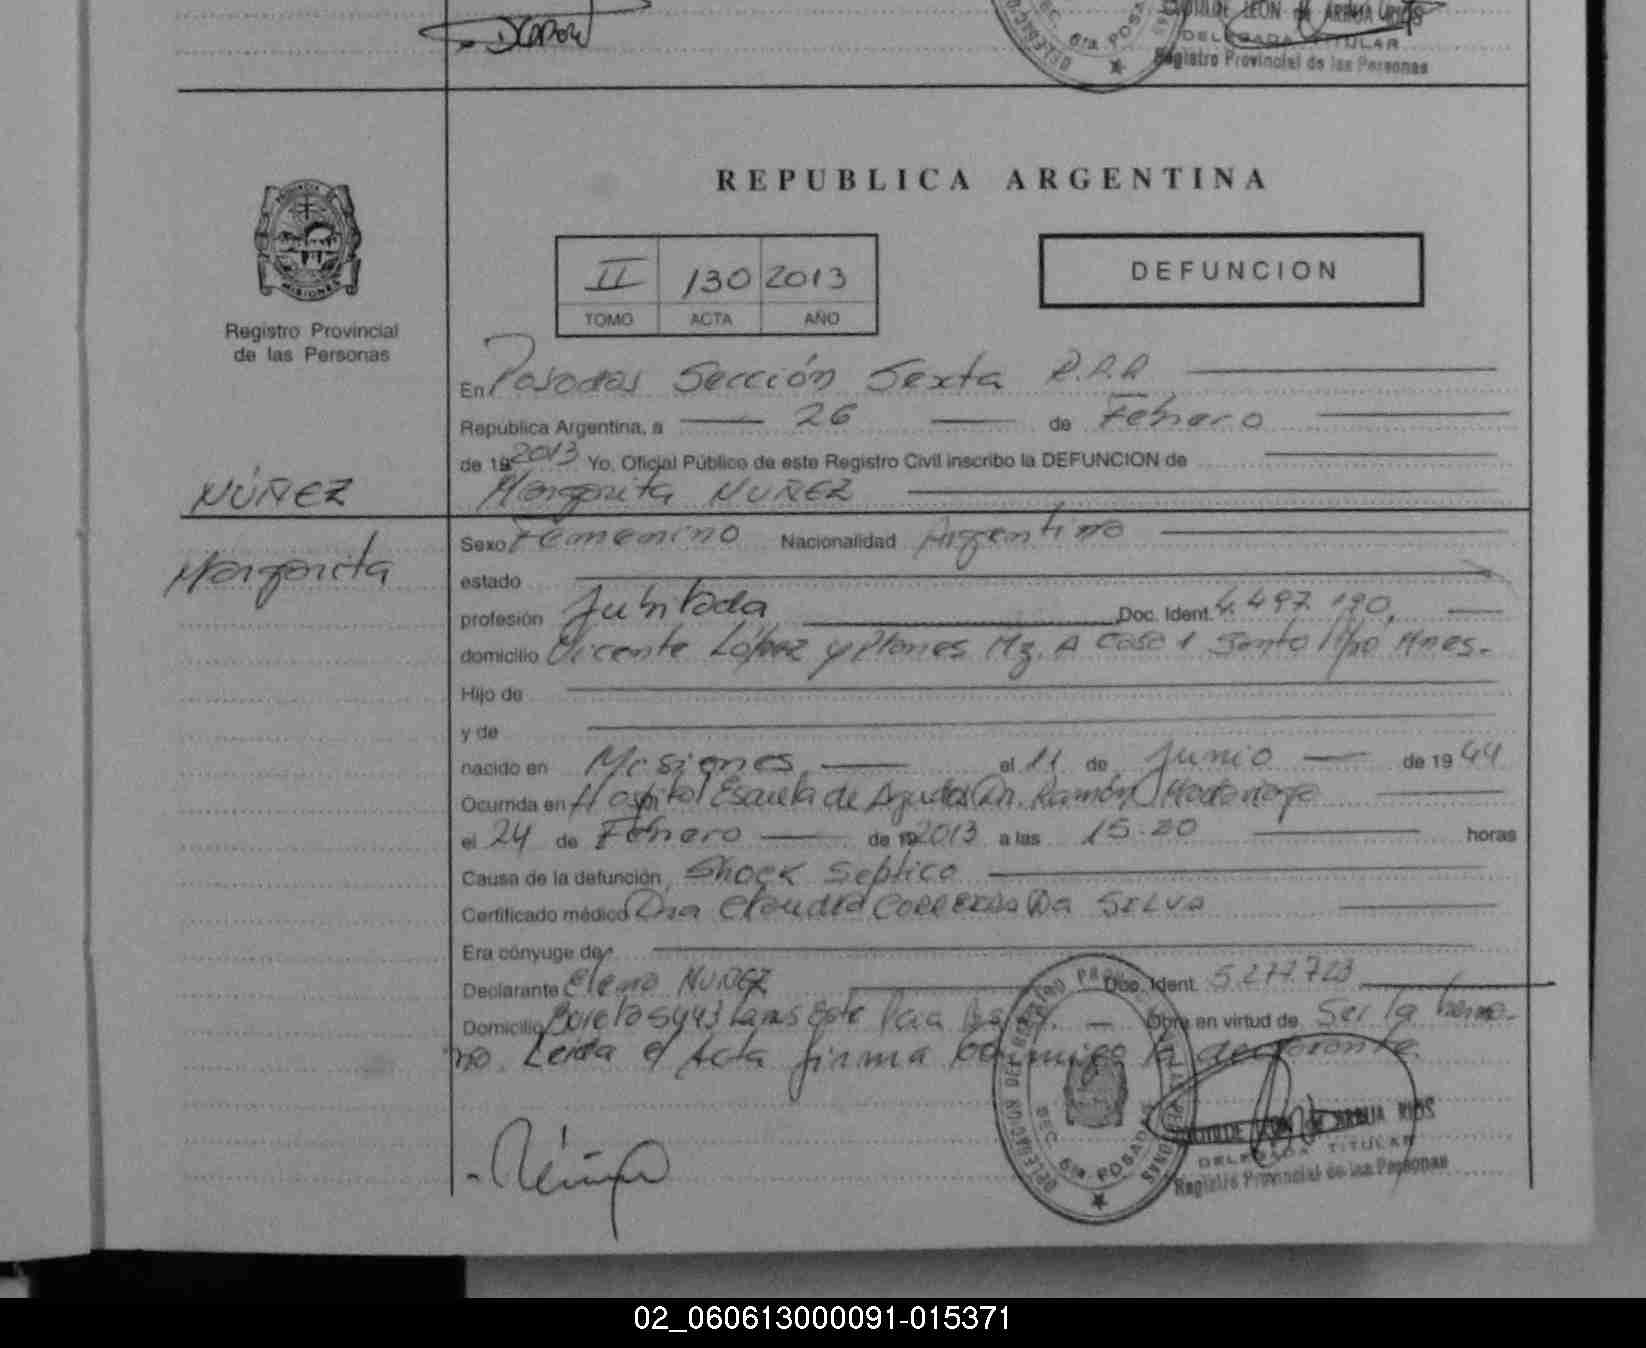 DELEGADA TITULAR
Registro Provincial de las Personas
REPUBLICA ARGENTINA
MISIONES
Registro Provincial
de las Personas
II 130 2013
TOMO ACTA AÑO
DEFUNCION
En Posadas Sección Sexta R.P.P.
República Argentina, a 26 de Febrero
de 19 2013 Yo, Oficial Público de este Registro Civil inscribo la DEFUNCION de
NÚÑEZ
Margarita NUÑEZ
Margarita
Sexo Femenino Nacionalidad Argentina
estado
profesión Jubilada Doc. Ident. 4.497.190,
domicilio Vicente López y Planes Mz. A Casa 1 Santo
Hijo de
y de
nacido en Misiones el 11 de Junio de 19 44
Ocurrida en Hospital Escuela de Agudos Dr. Ramón Madariaga
el 24 de Febrero de 19 2013 a las 15.20 horas
Causa de la defunción Shock Septico
Certificado médico Dra Claudia Da SILVA
Era cónyuge de
Declarante Elena NUÑEZ Doc. Ident. 5.277.723
Domicilio Este Obra en virtud de Ser la herma-
na. Leida el Acta firma conmigo la declarante.
SEC. 6ta. POSADAS
DELEGADA TITULAR
Registro Provincial de las Personas
02_060613000091-015371